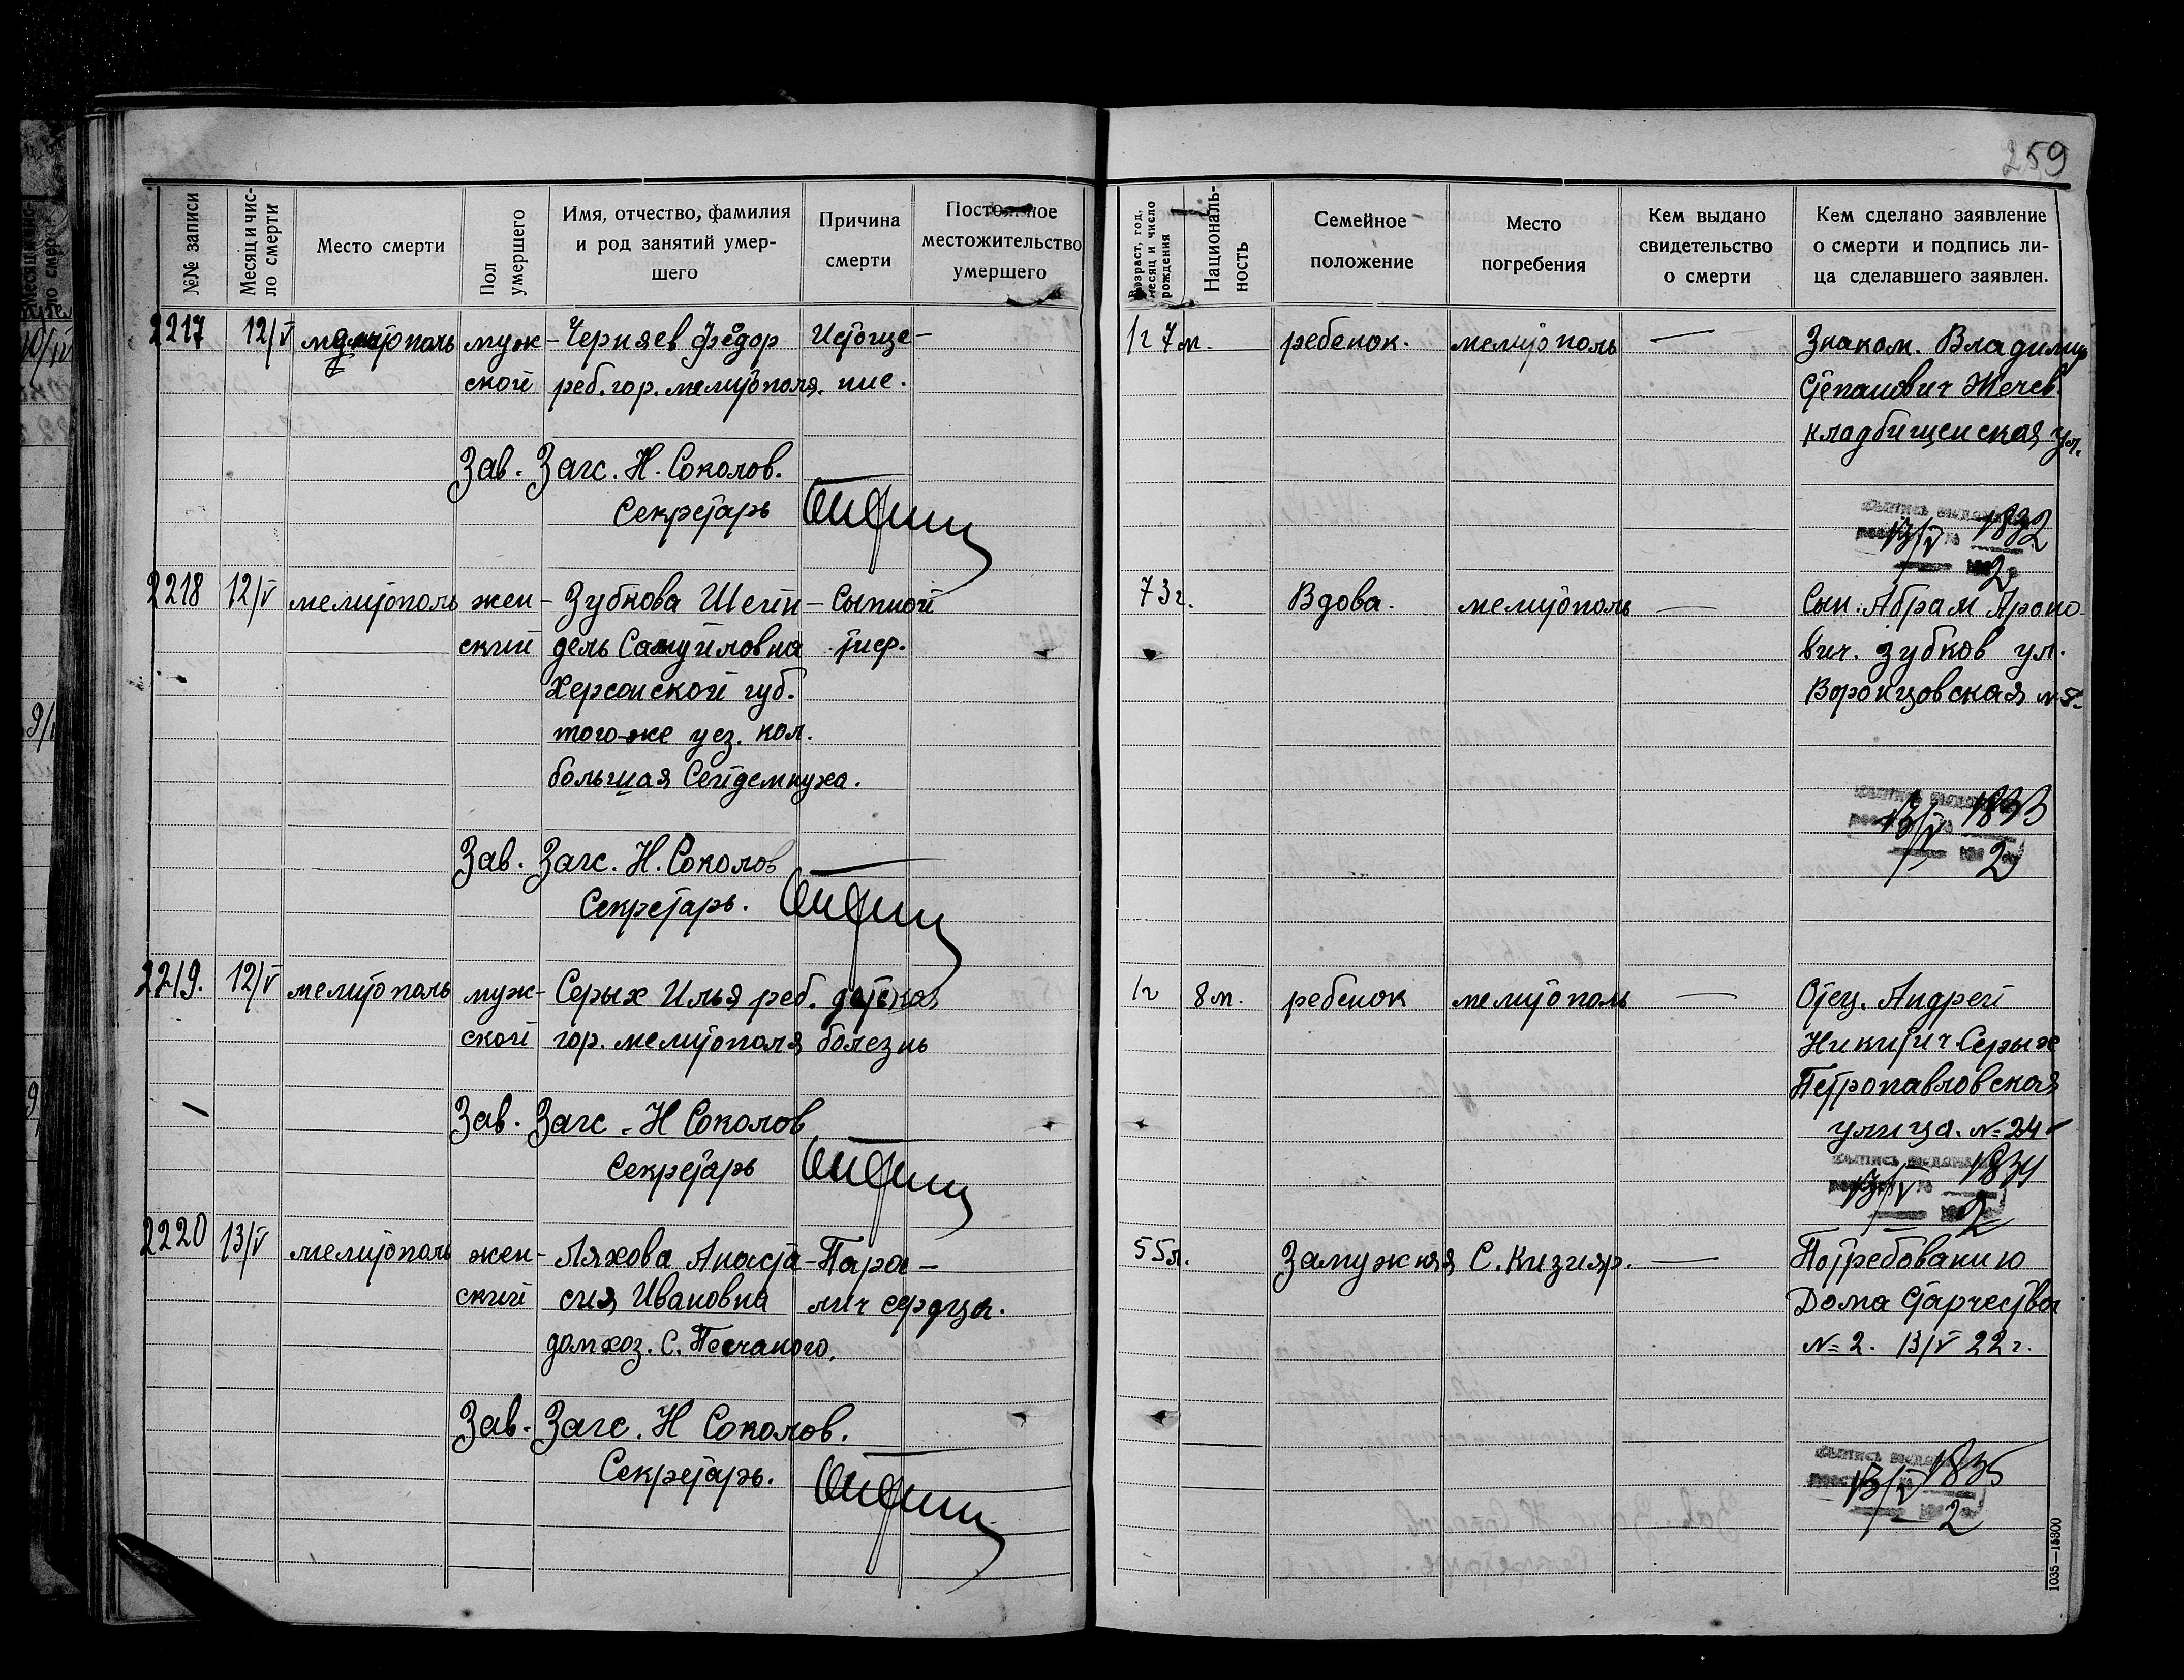 259
№№ записи
Месяц и чис-
ло смерти
Место смерти
Пол
умершего
Имя, отчество, фамилия
и род занятий умер-
шего
Причина
смерти
Постоянное
местожительство
умершего
Возраст, год,
месяц и число
рождения
Националь-
ность
Семейное
положение
Место
погребения
Кем выдано
свидетельство
о смерти
Кем сделано заявление
о смерти и подпись ли-
ца сделавшего заявлен.
2217 12/V мелитополь муж- Черняев Фёдор Истоще- 1г 7м. ребенок. мелитополь — Знаком. Владимир
ской реб. гор. мелитополя. ние. Степанович Жечев.
кладбищенская ул.
Зав. Загс. Н. Соколов.
Секретарь
13/V 1832
2
2218 12/V мелитополь жен- Зубкова Шейн- Сыпной 73г. Вдова. мелитополь — Сын. Абрам Ароно
ский дель Самуиловна тиф. вич. Зубков ул.
Херсонской губ. Воронцовская №
того-же уез. кол.
большая Сейдеминуха.
13/V 1833
2
Зав. Загс. Н. Соколов
Секретарь.
2219. 12/V мелитополь муж- Серых Илья реб. детская 1г 8м. ребенок мелитополь — Отец. Андрей
ской гор. мелитополя болезнь Никитич Серых
Петропавловская
улица. № 24
Зав. Загс. Н Соколов
Секретарь
13/V 1834
2
2220 13/V мелитополь жен- Ляхова Анаста- Пара- 55л. Замужняя С. Кизияр. — Потребованию
ский сия Ивановна лич сердца. Дома Старчества
домхоз. С. Песчаного. № 2. 13/V 22 г.
Зав. Загс. Н Соколов.
Секретарь.
13/V 1835
2
1035—15800